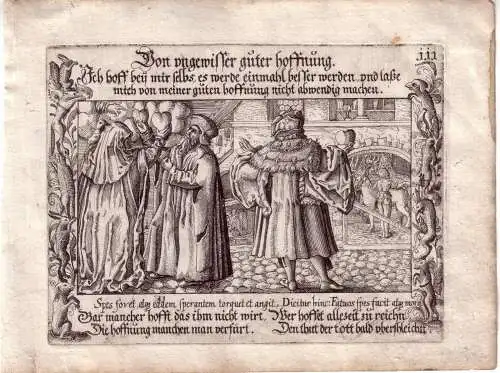 Von vngewisser güter hoffnung.
111
Ich hoff beÿ mir selbs, es werde einmahl besser werden, vnd laße
mich von meiner güten hoffnung nicht abwendig machen.
Spes fovet atq₃ eadem, sperantem torquet et angit, Dicitur hinc: Fatuos spes facit atq₃
Gar mancher hofft das ihm nicht wirt. Wer hoffet allezeit zu reichn
Die hoffnung manchen man verfürt. Den thut der tott bald vberschleichn